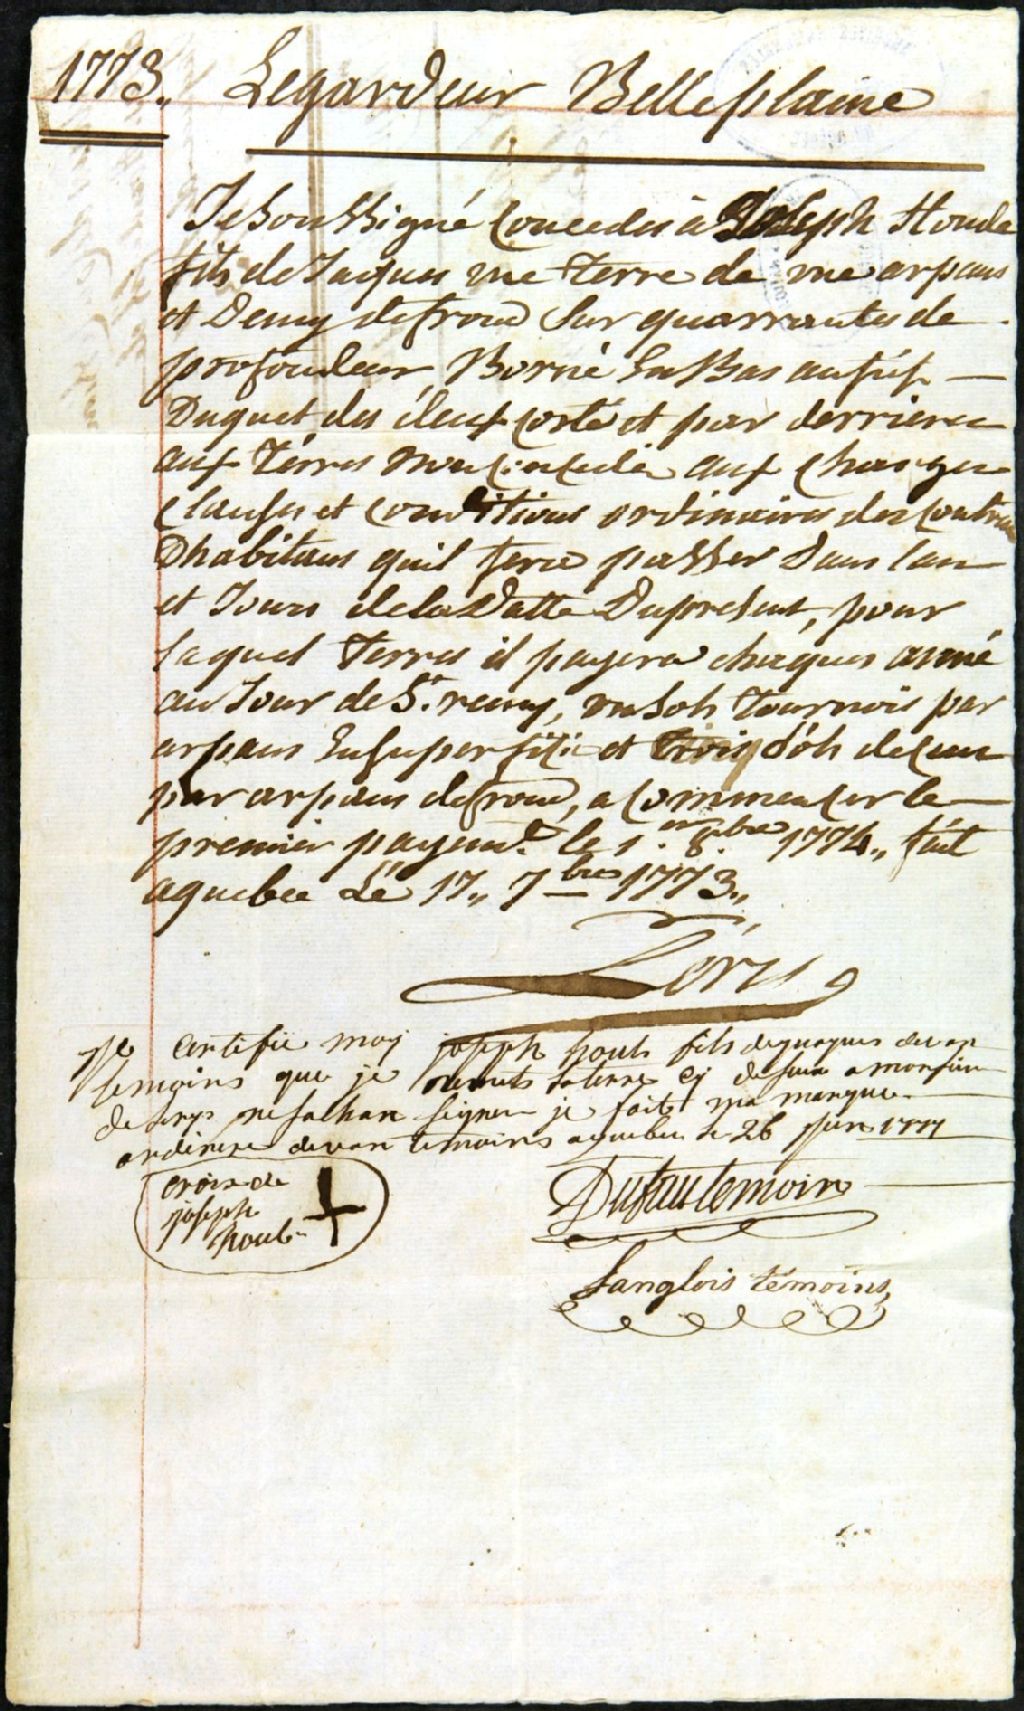 1773. Legardeur Belleplaine
Je Soussigné Concedes à Joseph Houde
fils de Jaques une terre de une arpans
et Demy de frond Sur quarrantes de
profondeur Borné En Bas au fief
Duquet des deux Costé et par derrieres
aux Terres non Concedé aux Charges
Clauses et Conditions ordinaires des Contras
Dhabitans quil fera passer Dans l'an
et Jours de la Datte Du present, pour
laquel Terres il payera chaques anné
au Jour de St. remy, un Sols Tournois par
arpans En Superfitie et trois Sols de Cens
par arpans de frond, a Commencer le
premier payemt. le 1.er 8.bre 1774., fait
a quebec Le 17., 7bre 1773.,
Lery
Je certifie moy joseph houle fils de jnaques devan
temoins que je remets la terre cy desus a monsieur
de lery ne sachan signer je fait ma marque
ordinere devan temoins a quebec le 26 1777
croix de
joseph
houle
Dufau temoin
Langlois temoins,